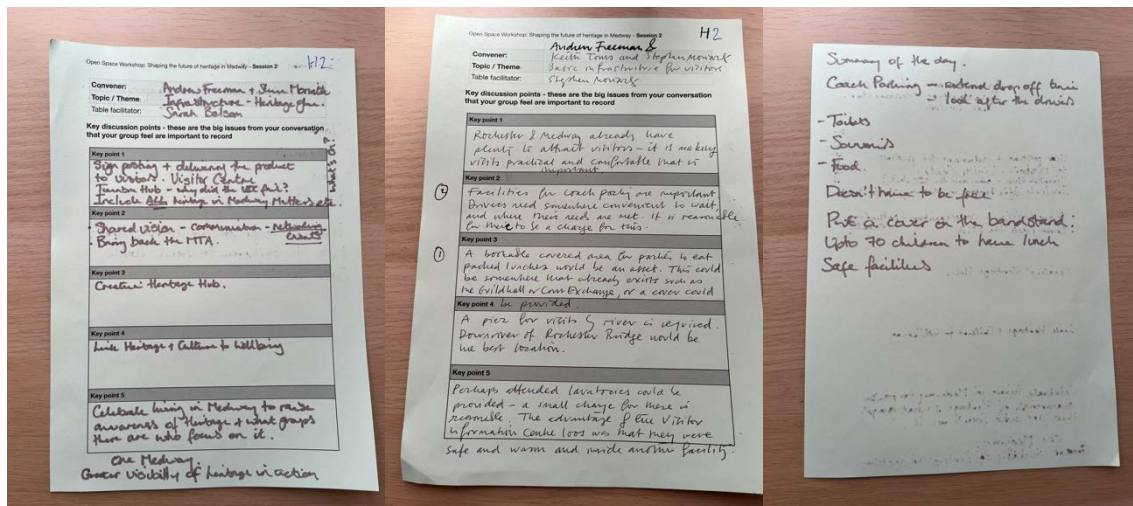 Open Space Workshop: Shaping the future of heritage in Medway - Session 2
H2
Convener:
Andrew Freeman +
Topic / Theme
Infrastructure - Heritage
Table facilitator:
Sarah
Key discussion points - these are the big issues from your conversation
that your group feel are important to record
What's On?
Key point 1
Sign posting + delivering the product
to visitors. Visitor Centre
Tourism Hub - why did the VIC fail?
Include ALL heritage in Medway Matters etc.
Key point 2
Shared vision - communication - networking
events
Bring back the MTA.
Key point 3
Creative Heritage Hub.
Key point 4
Link Heritage + Culture to Wellbeing
Key point 5
Celebrate living in Medway to raise
awareness of Heritage + what groups
there are who focus on it.
One Medway.
Greater visibility of heritage in action
Open Space Workshop: Shaping the future of heritage in Medway - Session 2
H2
Andrew Freeman &
Convener:
Keith Toms and Stephen
Topic / Theme
basic infrastructure for visitors
Table facilitator:
Stephen
Key discussion points - these are the big issues from your conversation
that your group feel are important to record
Key point 1
Rochester & Medway already have
plenty to attract visitors - it is making
visits practical and comfortable that is
important
Key point 2
② Facilities for coach parties are important
Drivers need somewhere convenient to wait
and where their needs are met. It is reasonable
for there to be a charge for this.
Key point 3
① A bookable covered area for parties to eat
packed lunches would be an asset. This could
be somewhere that already exists such as
the Guildhall or Corn Exchange, or a cover could
Key point 4 be provided.
A pier for visits by river is required.
Downriver of Rochester Bridge would be
the best location.
Key point 5
Perhaps attended lavatories could be
provided - a small charge for these is
reasonable. The advantage of the Visitor
Information Centre loos was that they were
safe and warm and inside another facility.
Summary of the day.
Coach Parking - extend drop off time
- look after the drivers
- Toilets
- Souvenirs
- Food.
Doesn't have to be free
Put a cover on the bandstand.
Upto 70 children to have lunch
Safe facilities